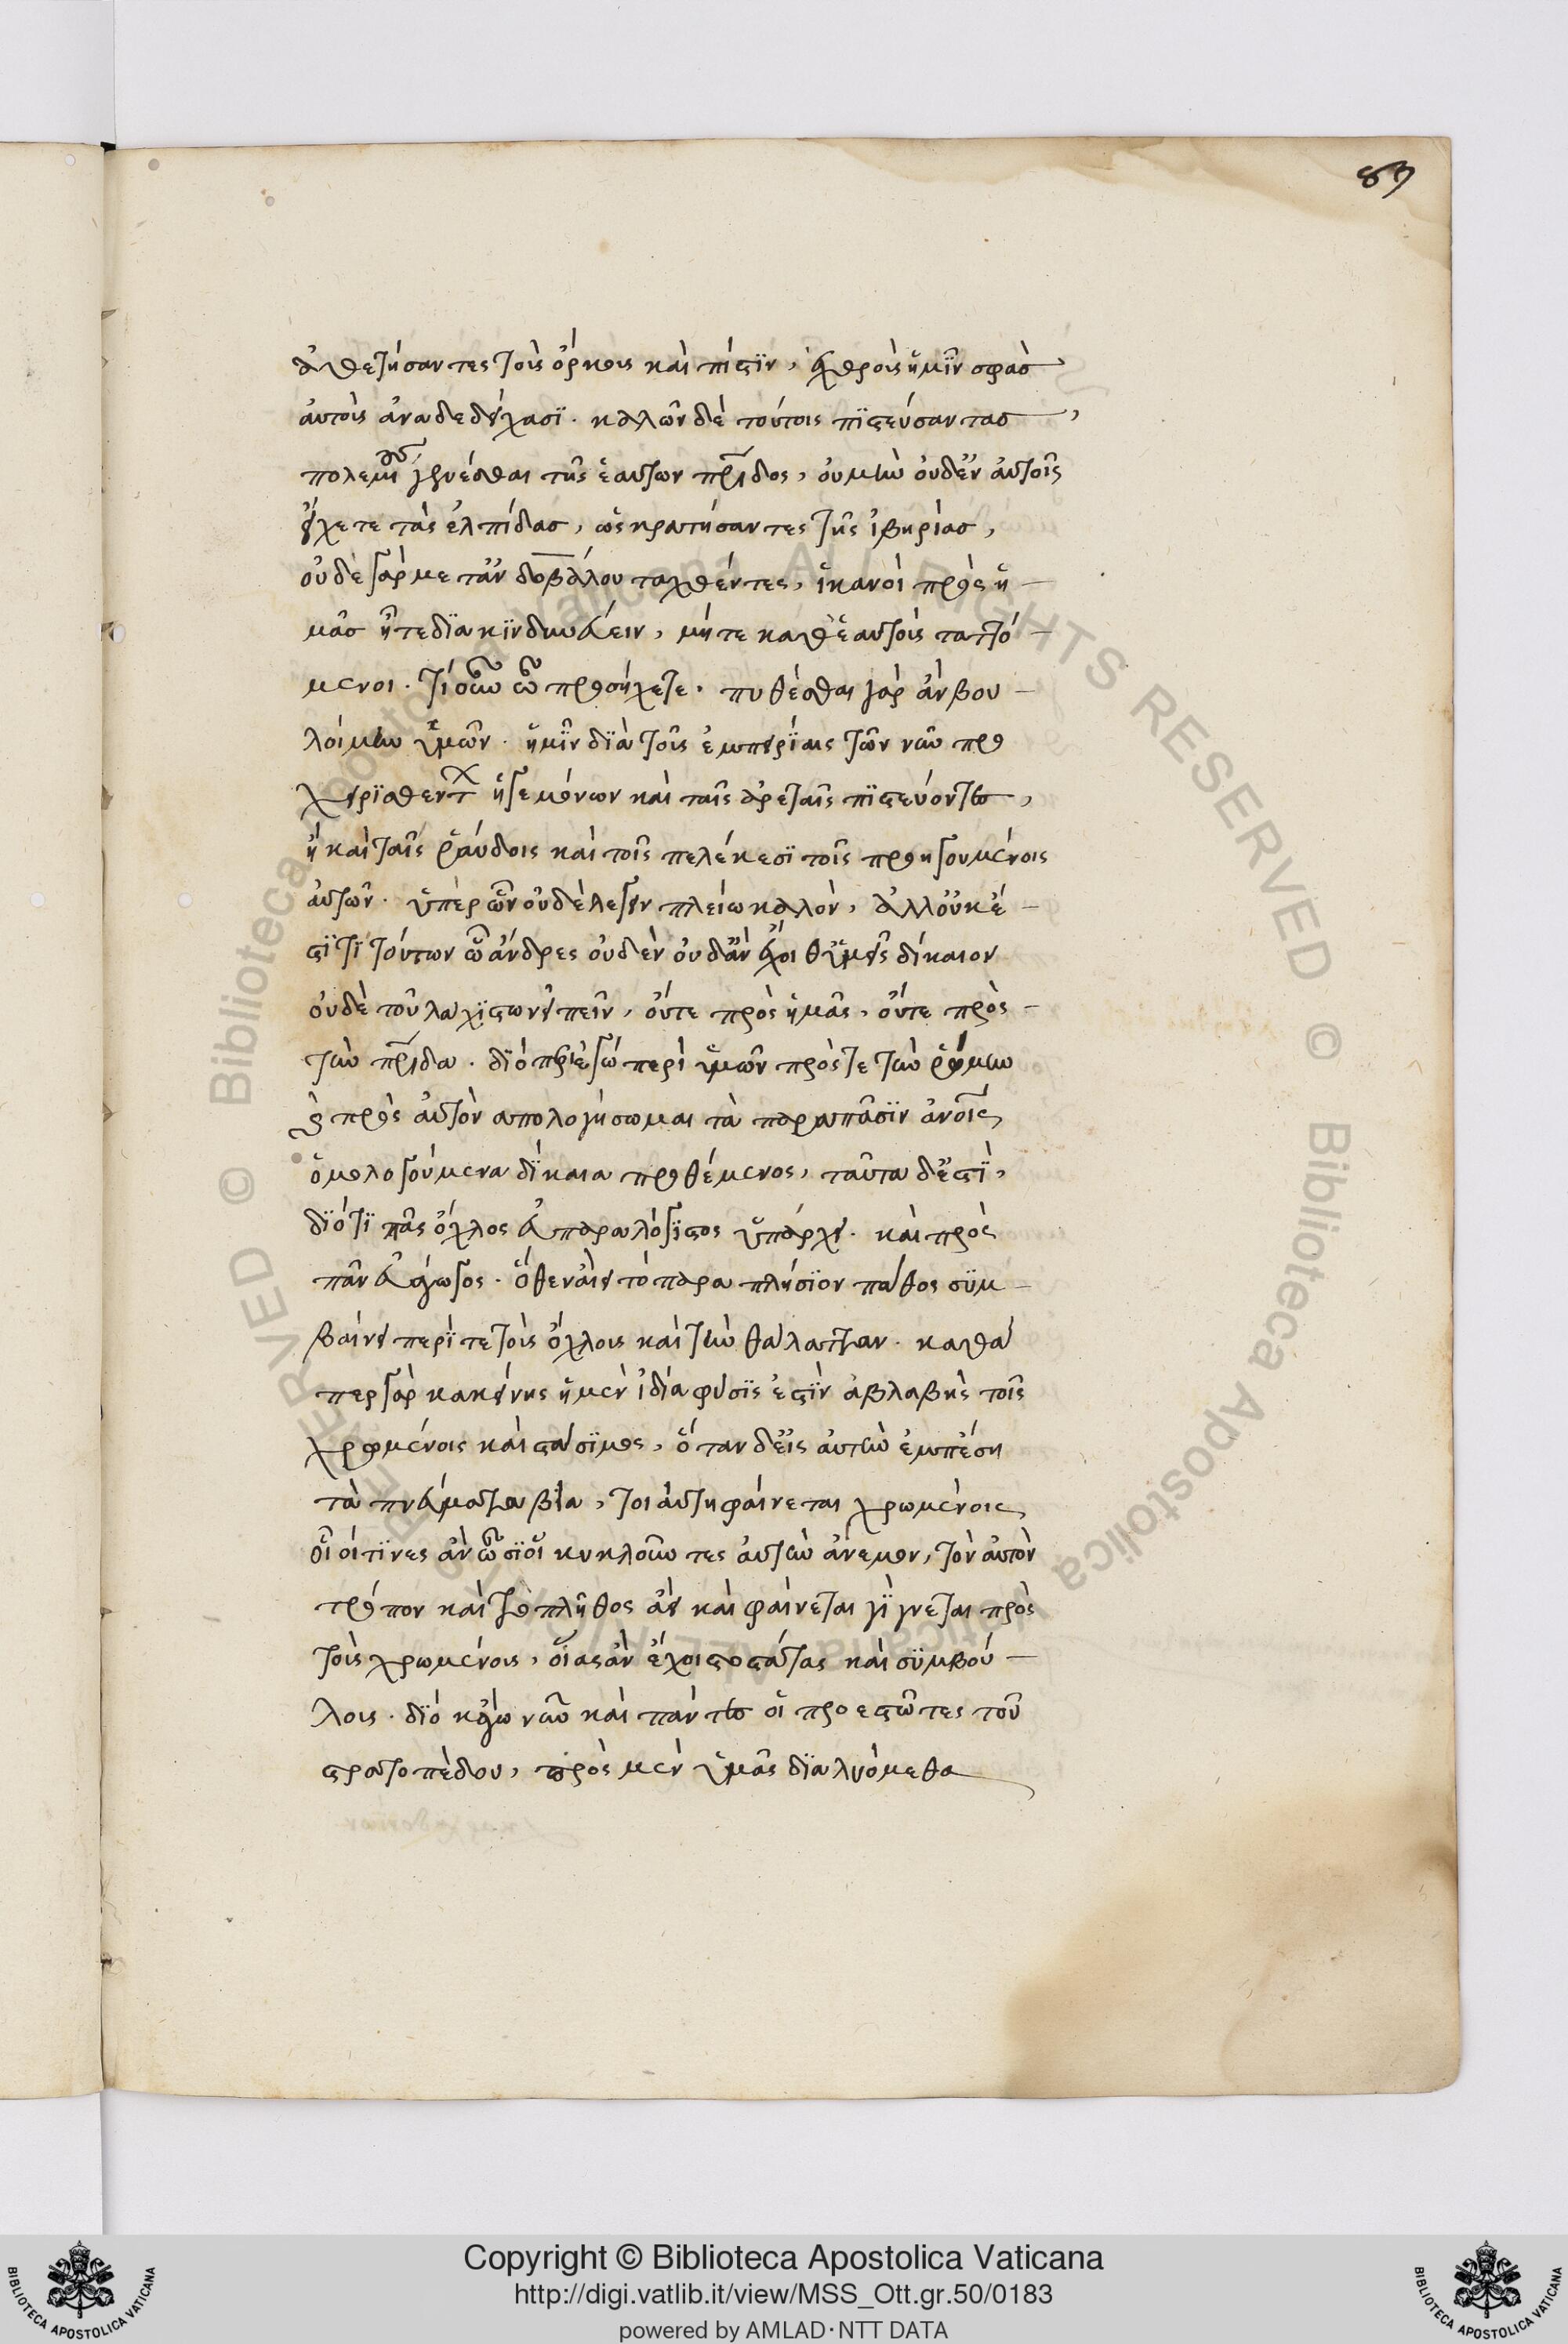 ἀθετήσαντες τοὺς ὅρκους καὶ πίστιν, ἐχθροὺς ἡμῖν σφᾶσ
αὐτοὺς ἀναδεδείχασι. καλῶν δὲ τούτοις πιστεύσαντασ,
πολεμίους γενέσθαι τῆς ἑαυτων πρίδος, ου μὴν οὐδἐν αὐτοῖς
εἴχετε τὰς ἐλπίδασ, ὡς κρατήσαντες τῆς ἰβηρίασ,
οὐδὲ γὰρ μετἀν δοβάλου ταχθέντες, ἱκανοὶ πρὸς ἡ-
μᾶσ ἦτε διακινδυνεύειν, μήτε καθἑαυτοὺς ταττό-
μενοι. τί οὖν ὧ προσήχετε. πυθέσθαι γὰρ ἂν βου-
λοίμην ὑμῶν. ἡμῖν διὰ τοῖς ἐμπειρίαις τῶν νῦν προ
χειρισθεντων ἡγεμόνων καὶ ταῖς ἀρεταῖς πιστεύοντες,
ἢ καὶ ταῖς ῥάυδοις καὶ τοῖς πελέκεσι τοῖς προηγουμένοις
αὐτῶν. ὑπὲρ ὧν οὐδὲ λεγειν πλείω καλὸν, ἀλλοὐκἔ-
στι τι τούτων ὦ ἄνδρες οὐδὲν οὐδἂν ἔχοι θὑμεῖς δίκαιον
οὐδὲ τοὐλαχιστων εἰπεῖν, οὔτε πρὸς ἡμᾶς, οὔτε πρὸς-
τὴν πρίδα. διόπερ ἐγώ περὶ ὑμῶν πρὸς τε τὴν ῥώμην
καὶ πρὸς αὐτὸν απολογήσωμαι τὰ παραπᾶσιν ἀνοις
ὁμολογούμενα δίκαια προθέμενος, ταῦτα δἐστὶ,
διότι πᾶς ὄχλος εὐπαραλόγιστος ὑπάρχει. καὶ πρὸς
πᾶν εὐάγωγος. ὅθεν ἀεὶ τὸ παραπλήσιον πάθος συμ-
βαίνει περί τε τοὺς ὄχλους καὶ τὴν θάλατταν. καθά
περ γὰρ κακείνης ἡ μὲν ἰδία φύσις ἐστὶν ἀβλαβὴς τοῖς
χρωμένοις καὶ στάσιμος, ὅταν δἐις αὐτὴν ἐμπέση
τὰ πνεύματα βία, τοι αὐτη φαίνεται χρωμένοις
οἷ οἵτινες ἂν ὦσι οἱ κυκλοῦντες αὐτὴν ἀνεμον, τὸν αὐτὸν
τρόπον καὶ τὸ πλῆθος ἀεὶ καὶ φαίνεται γίγνεται πρὸς
τοὺς χρωμένους, οἵας ἂν ἔχοι στοστάτας καὶ συμβού-
λους. διὸ κἀγὼ νῦν καὶ πάντες οἱ προεστῶτες τοῦ
στρατοπέδου, πρὸς μὲν ὑμᾶς διαλυόμεθα
83
Copyright © Biblioteca Apostolica Vaticana
http://digi.vatlib.it/view/MSS_Ott.gr.50/0183
powered by AMLAD·NTT DATA